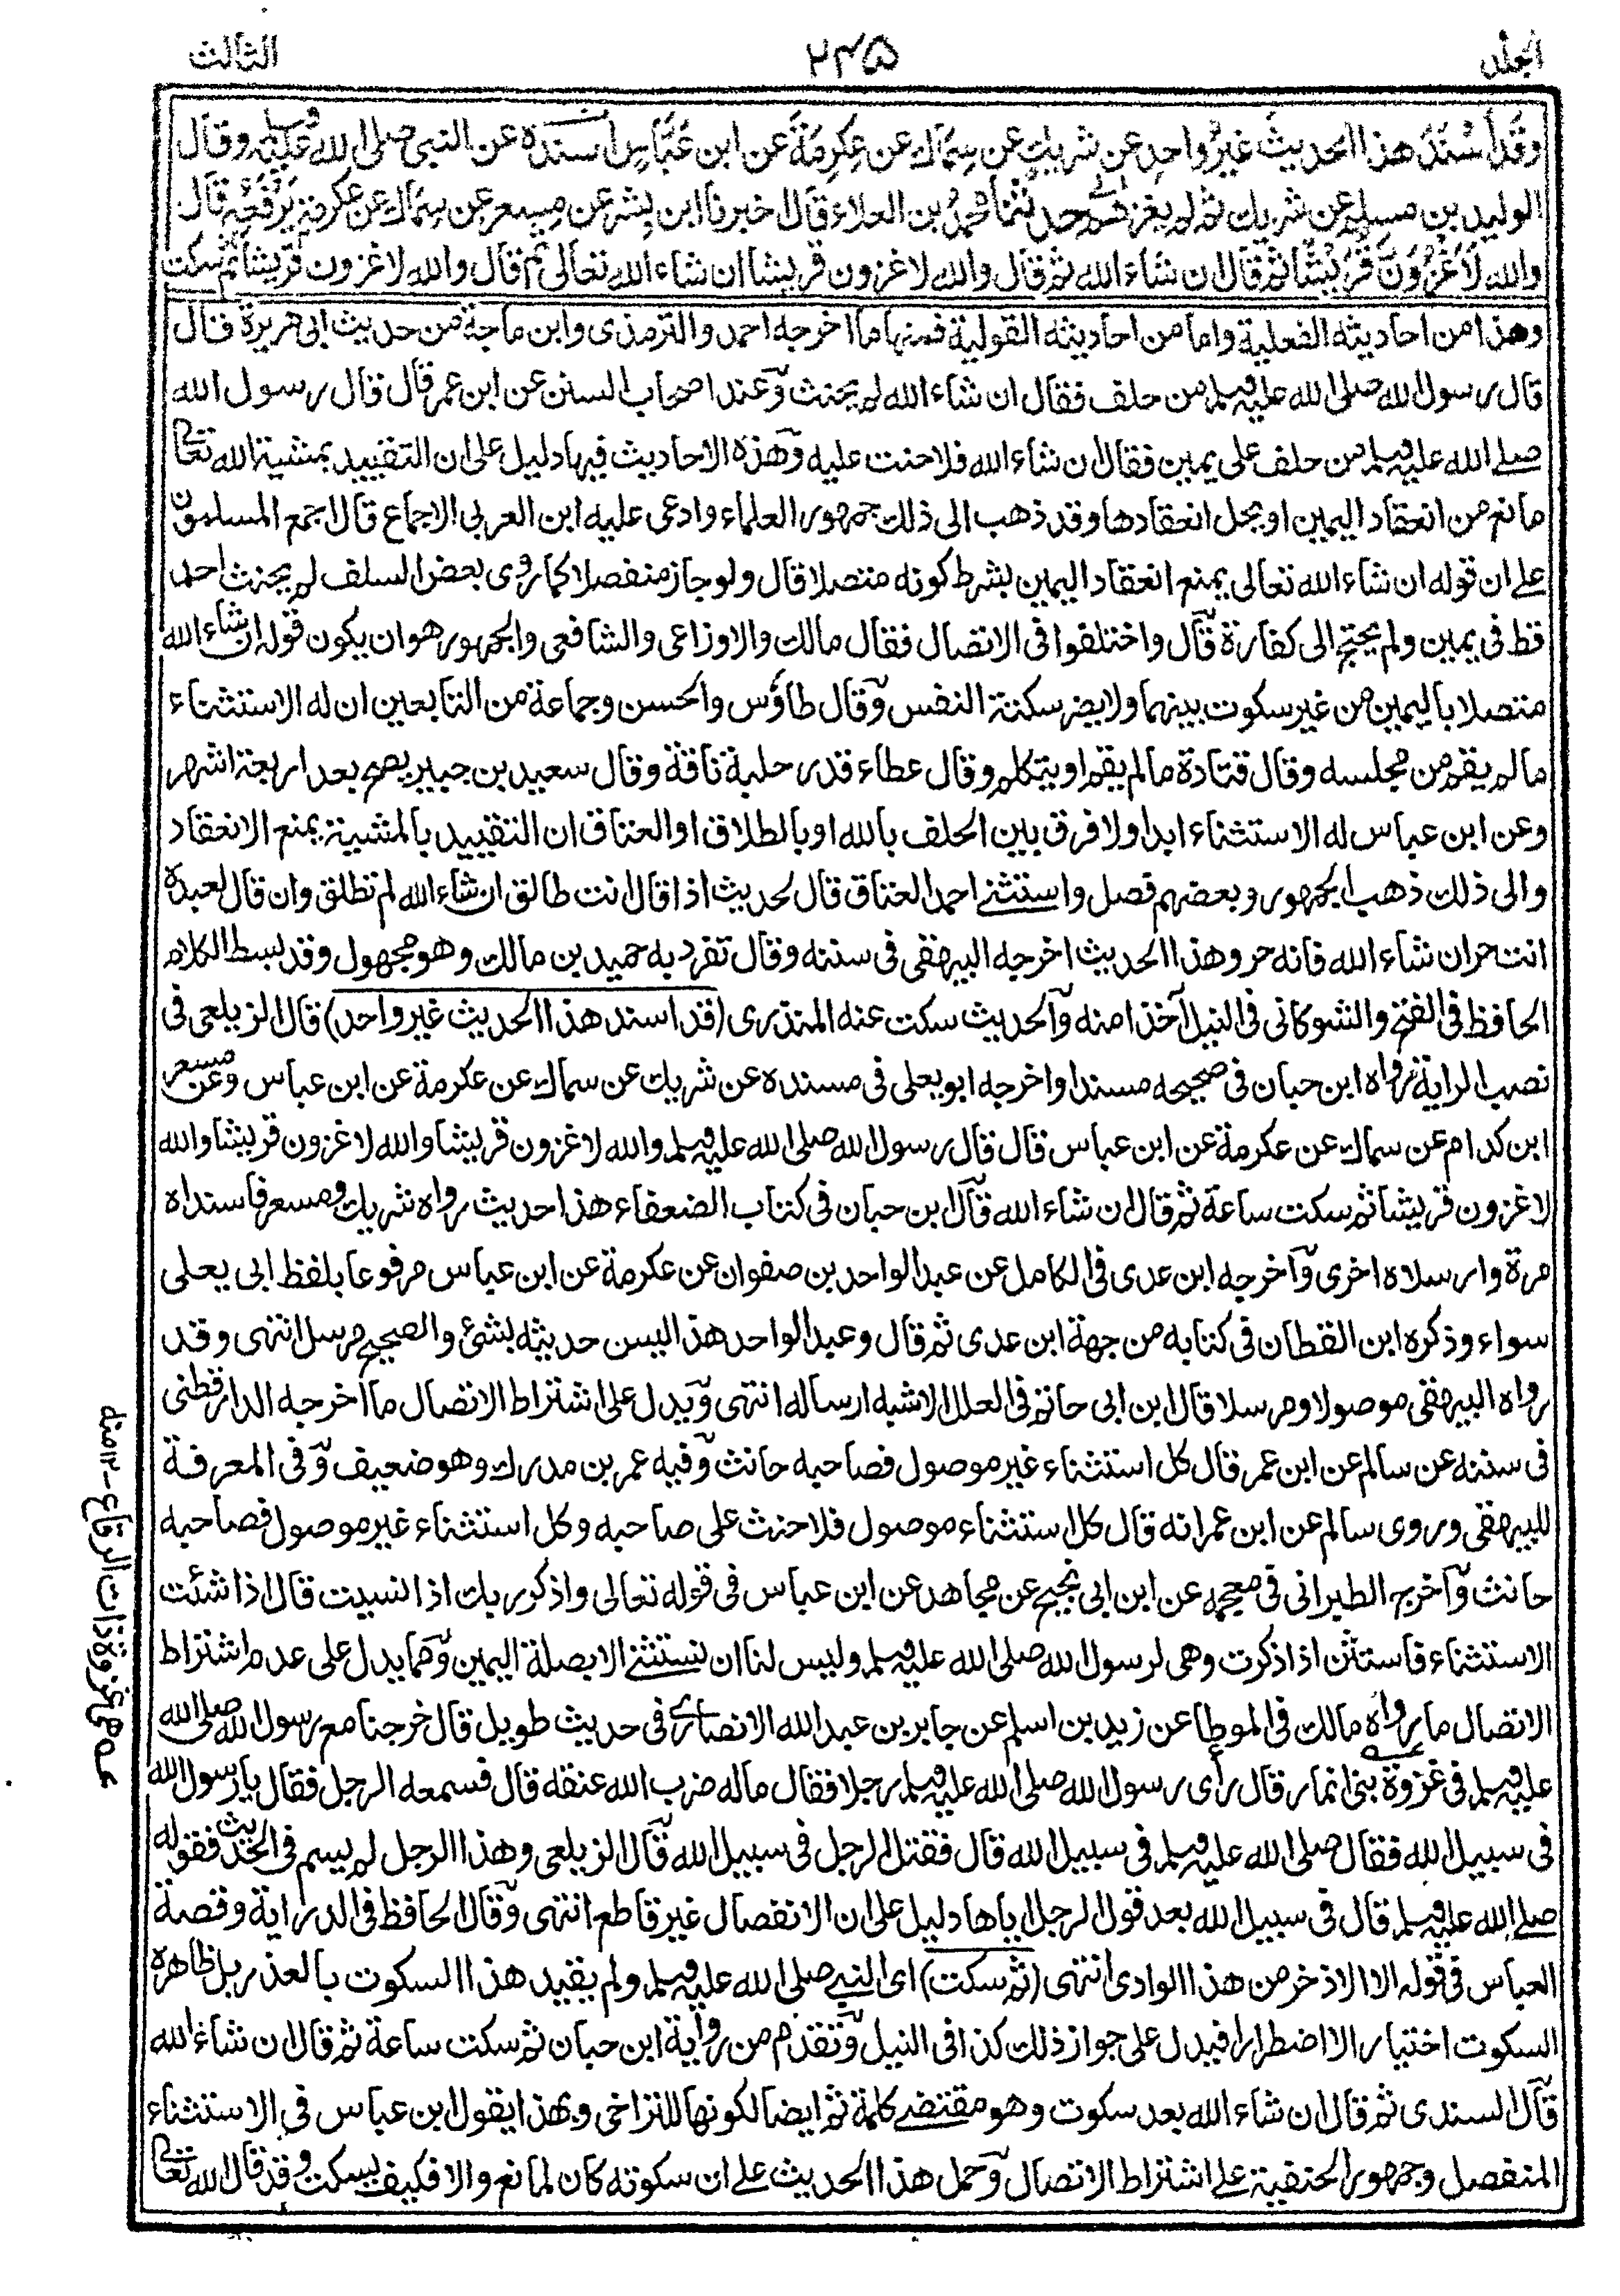 الجلد ٢٤٥ الثالث
وقد أسند هذا الحديث غير واحد عن شريك عن سماك عن عكرمة عن ابن عباس أسنده عن النبي صلى الله عليه وسلم وقال
الوليد بن مسلم عن شريك ثم لم يغزهم حدثنا محمد بن العلاء قال اخبرنا ابن بشر عن مسعر عن سماك عن عكرمة يرفعه قال
والله لأغزون قريشا ثم قال ان شاء الله ثم قال والله لاغزون قريشا ان شاء الله تعالى ثم قال والله لاغزون قريشا ثم سكت
وهذا من احاديثه الفعلية واما من احاديثه القولية فمنها ما اخرجه احمد والترمذى وابن ماجة من حديث ابى هريرة قال
قال رسول الله صلى الله عليه وسلم من حلف فقال ان شاء الله لم يحنث وعند اصحاب السنن عن ابن عمر قال قال رسول الله
صلے الله عليه وسلم من حلف على يمين فقال ان شاء الله فلا حنث عليه وهذه الاحاديث فيها دليل على ان التقييد بمشية الله تعالى
مانع من انعقاد اليمين او يحل انعقادها وقد ذهب الى ذلك جمهور العلماء وادعى عليه ابن العربى الاجماع قال اجمع المسلمون
على ان قوله ان شاء الله تعالى يمنع انعقاد اليمين بشرط كونه متصلا قال ولو جاز منفصلا كما روى بعض السلف لم يحنث احد
قط فى يمين ولم يحتج الى كفارة قال واختلفوا فى الاتصال فقال مالك والاوزاعى والشافعى والجمهور هو ان يكون قوله ان شاء الله
متصلا باليمين من غير سكوت بينهما ولا يضر سكتة النفس وقال طاؤس والحسن وجماعة من التابعين ان له الاستثناء
ما لم يقم من مجلسه وقال قتادة ما لم يقم او يتكلم وقال عطاء قدر حلبة ناقة وقال سعيد بن جبير يصح بعد اربعة اشهر
وعن ابن عباس له الاستثناء ابدا ولا فرق بين الحلف بالله او بالطلاق او العتاق ان التقييد بالمشية يمنع الانعقاد
والى ذلك ذهب الجمهور وبعضهم فصل واستثنے احمد العتاق قال لحديث اذا قال انت طالق ان شاء الله لم تطلق وان قال لعبده
انت حر ان شاء الله فانه حر وهذا الحديث اخرجه البيهقى فى سننه وقال تفرد به حميد بن مالك وهو مجهول وقد بسط الكلام
الحافظ فى الفتح والشوكانى فى النيل آخذا منه والحديث سكت عنه المنذرى (قد اسند هذا الحديث غير واحد) قال الزيلعى فى
نصب الراية رواه ابن حبان فى صحيحه مسندا واخرجه ابو يعلى فى مسنده عن شريك عن سماك عن عكرمة عن ابن عباس وعن مسعر
ابن كدام عن سماك عن عكرمة عن ابن عباس قال قال رسول الله صلى الله عليه وسلم والله لاغزون قريشا والله لاغزون قريشا والله
لاغزون قريشا ثم سكت ساعة ثم قال ان شاء الله قال ابن حبان فى كتاب الضعفاء هذا حديث رواه شريك ومسعر فاسنداه
مرة وارسلاه اخرى واخرجه ابن عدى فى الكامل عن عبد الواحد بن صفوان عن عكرمة عن ابن عباس مرفوعا بلفظ ابى يعلى
سواء وذكره ابن القطان فى كتابه من جهة ابن عدى ثم قال وعبد الواحد هذا ليس حديثه بشئ والصحيح مرسل انتهى وقد
رواه البيهقى موصولا ومرسلا قال ابن ابى حاتم فى العلل الاشبه ارساله انتهى ويدل على اشتراط الاتصال ما اخرجه الدارقطنى
فى سننه عن سالم عن ابن عمر قال كل استثناء غير موصول فصاحبه حانث وفيه عمر بن مدرك وهو ضعيف وفى المعرفة
للبيهقى وروى سالم عن ابن عمر انه قال كل استثناء موصول فلا حنث على صاحبه وكل استثناء غير موصول فصاحبه
حانث واخرج الطبرانى فى معجمه عن ابن ابى نجيح عن مجاهد عن ابن عباس فى قوله تعالى واذكر ربك اذا نسيت قال اذا شئت
الاستثناء فاستثن اذا ذكرت وهى لرسول الله صلى الله عليه وسلم وليس لنا ان نستثنے الا بصلة اليمين ومما يدل على عدم اشتراط
الاتصال ما رواه مالك فى الموطا عن زيد بن اسلم عن جابر بن عبد الله الانصارى فى حديث طويل قال خرجنا مع رسول الله صلى الله
عليه وسلم فى غزوة بنى انمار قال رأى رسول الله صلى الله عليه وسلم رجلا فقال ماله ضرب الله عنقه قال فسمعه الرجل فقال يا رسول الله
فى سبيل الله فقال صلى الله عليه وسلم فى سبيل الله قال فقتل الرجل فى سبيل الله قال الزيلعى وهذا الرجل لم يسم فى الحديث فقوله
صلے الله عليه وسلم قال فى سبيل الله بعد قول الرجل اياها دليل على ان الانفصال غير قاطع انتهى وقال الحافظ فى الدراية وقصة
العباس فى قوله الا الاذخر من هذا الوادى انتهى (ثم سكت) اى النبے صلى الله عليه وسلم ولم يقيد هذا السكوت بالعذر بل ظاهره
السكوت اختيارا لا اضطرارا فيدل على جواز ذلك كذا فى النيل وتقدم من رواية ابن حبان ثم سكت ساعة ثم قال ان شاء الله
قال السندى ثم قال ان شاء الله بعد سكوت وهو مقتضے كلمة ثم ايضا لكونها للتراخى وبهذا يقول ابن عباس فى الاستثناء
المنفصل وجمهور الحنفية على اشتراط الاتصال وحمل هذا الحديث على ان سكوته كان لمانع والا فكيف يسكت وقد قال الله تعالى
عه وهى غزوة ذات الرقاع - ١٢ منه